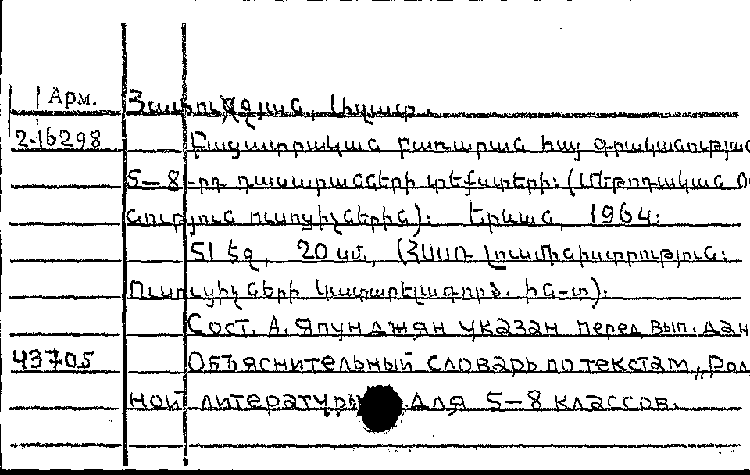 Арм.
2-16298
Բացատրական բառարան հայ գրականության
5–8-րդ դասարանների տեքստերի: (Մեթոդական
նություն ուսուցիչներին): Երևան, 1964:
51 էջ, 20 սմ, (ՀՍՍՌ լուսմինիստրություն:
Ուսուցիչների կատարելագործ. ին-տ):
Сост. А. Япунджян указан перед вып. дан
43705 Объяснительный словарь по текстам „Род
ной литературы для 5–8 классов.